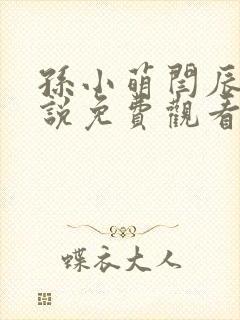 孫小萌閆辰
說免費觀看
蝶衣大人